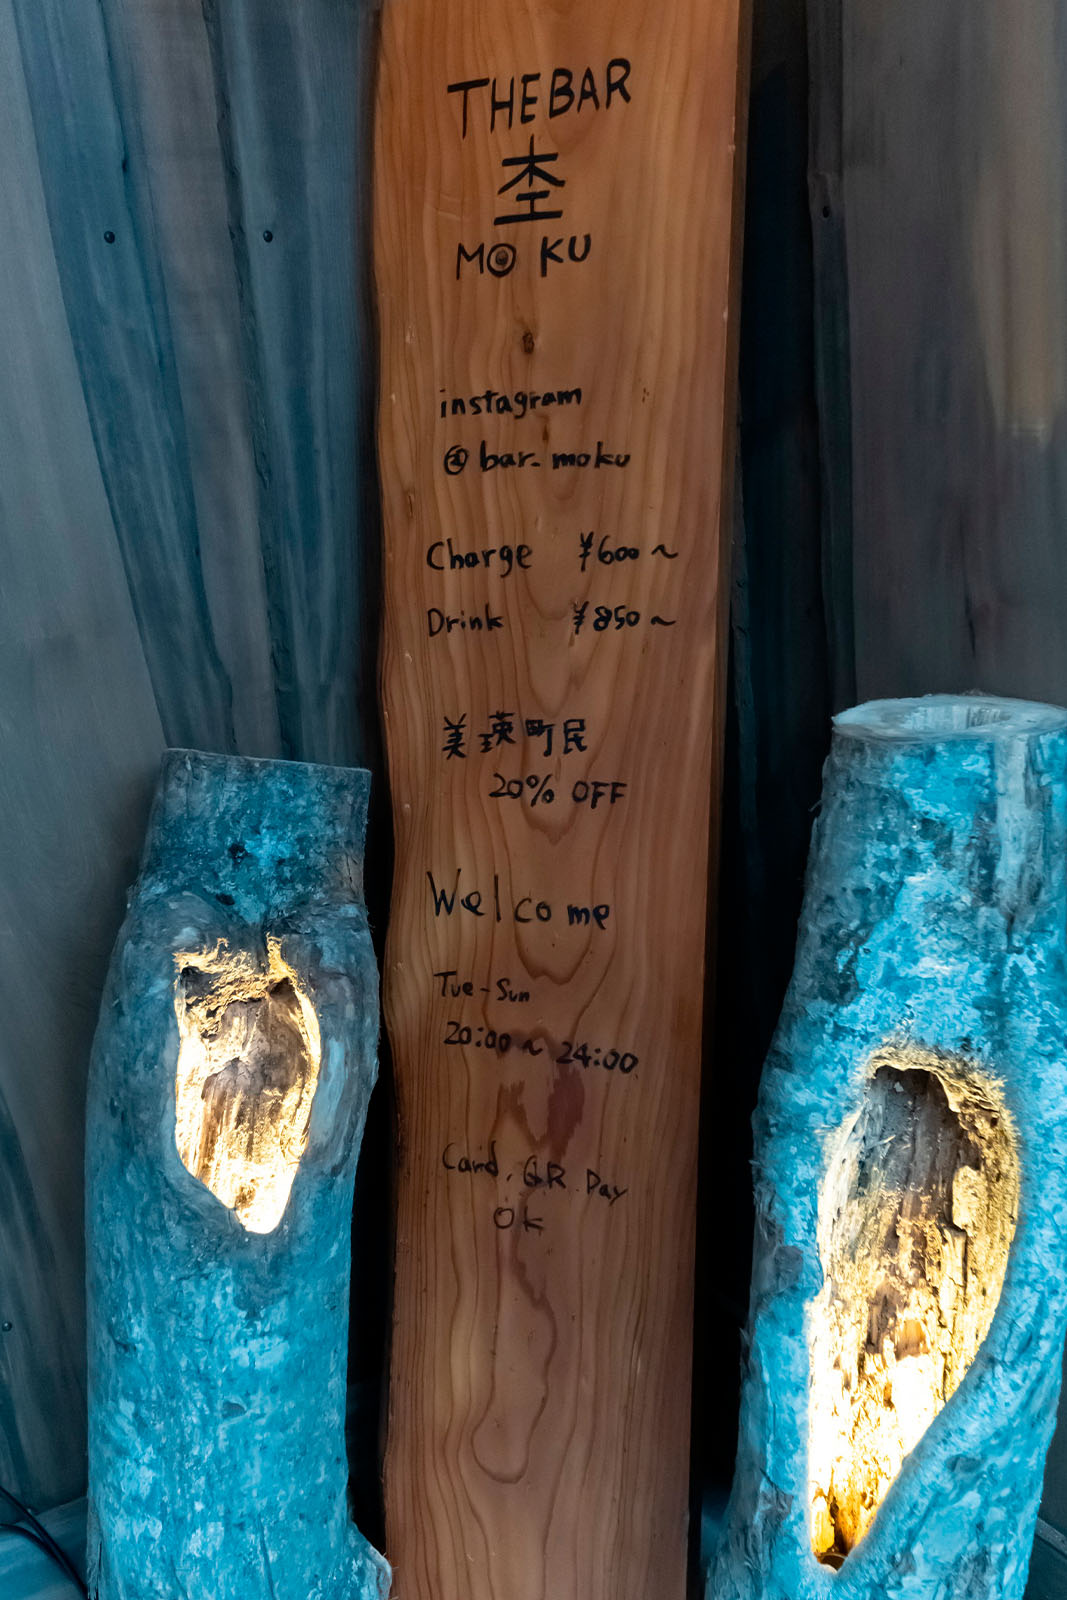 THE BAR
杢
MOKU
instagram
@bar_moku
Charge ¥600~
Drink ¥850~
美瑛町民
20% OFF
Welcome
Tue-Sun
20:00~24:00
Card, QR Pay
Ok